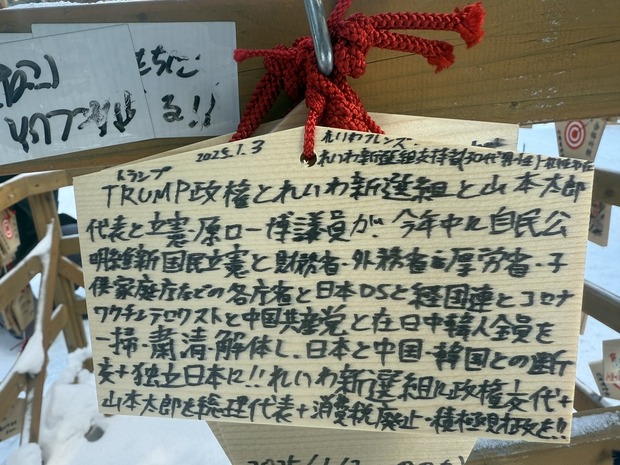 る!!
2025.1.3
れいわフレンズ
トランプ
TRUMP政権とれいわ新選組と山本太郎
代表と立憲・原口一博議員が、今年中に自民公
明維新国民立憲と財務省・外務省・厚労省・子
供家庭庁などの各庁省と日本DSと経団連とコロナ
ワクチンテロリストと中国共産党と在日中韓人全員を
一掃・粛清・解体し、日本と中国・韓国との断
交+独立日本に!!れいわ新選組に政権交代+
山本太郎を総理代表+消費税廃止・積極財政を!!